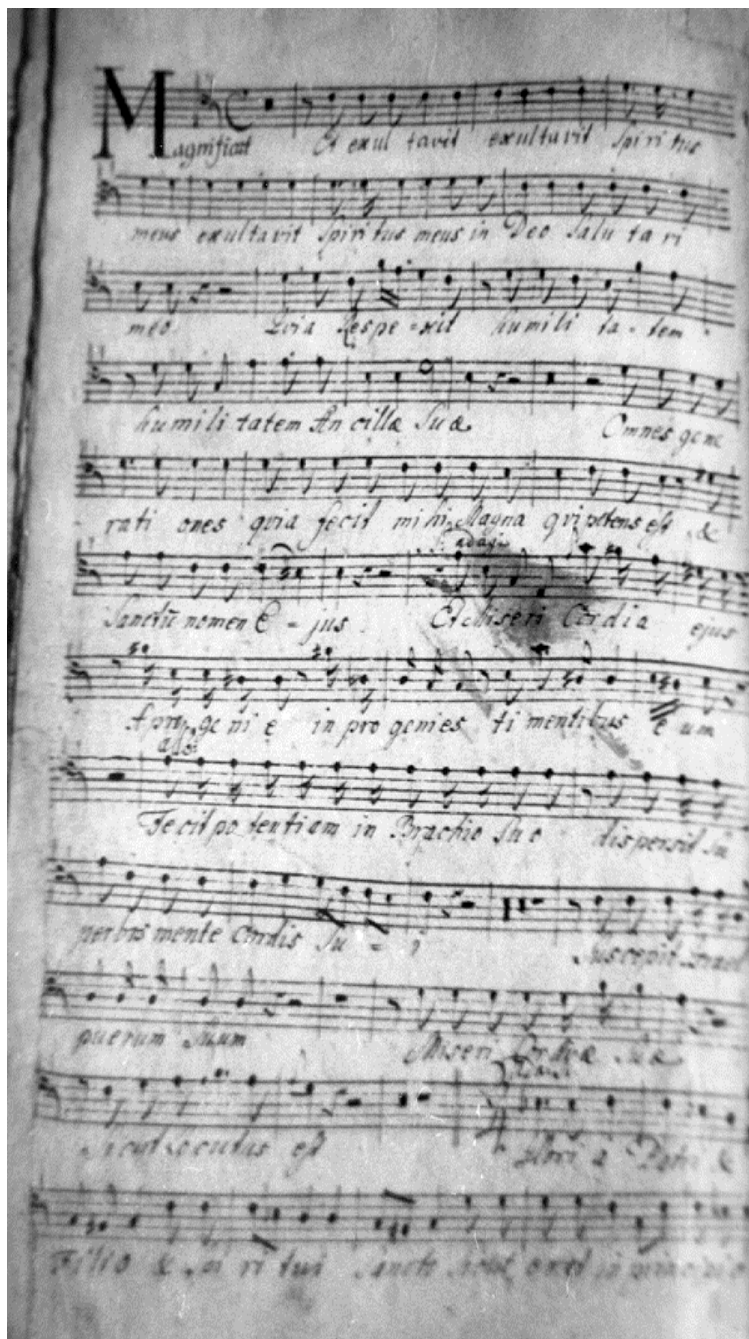 Magnificat Et exul tavit exultavit Spiri tus
meus exultavit Spiri tus meus in Deo Salu ta ri
meo Quia Respe-xit humili ta-tem
humili tatem An cillæ Suæ Omnes gene
rati ones quia fecit mihi Magna qui potens est &
adagio
Sanctũ nomen E-jus Et Miseri Cordia ejus
A pro ge ni e in pro genies ti mentibus e um
Fecit po tentiam in Brachio Suo dispersit Su
perbos mente Cordis Su-i Suscepit Israel
puerum Suum Miseri Cordiæ Suæ
Sicut Locutus est Glori a Patri &
Filio & Spi ri tui Sancto Sicut erat in principio